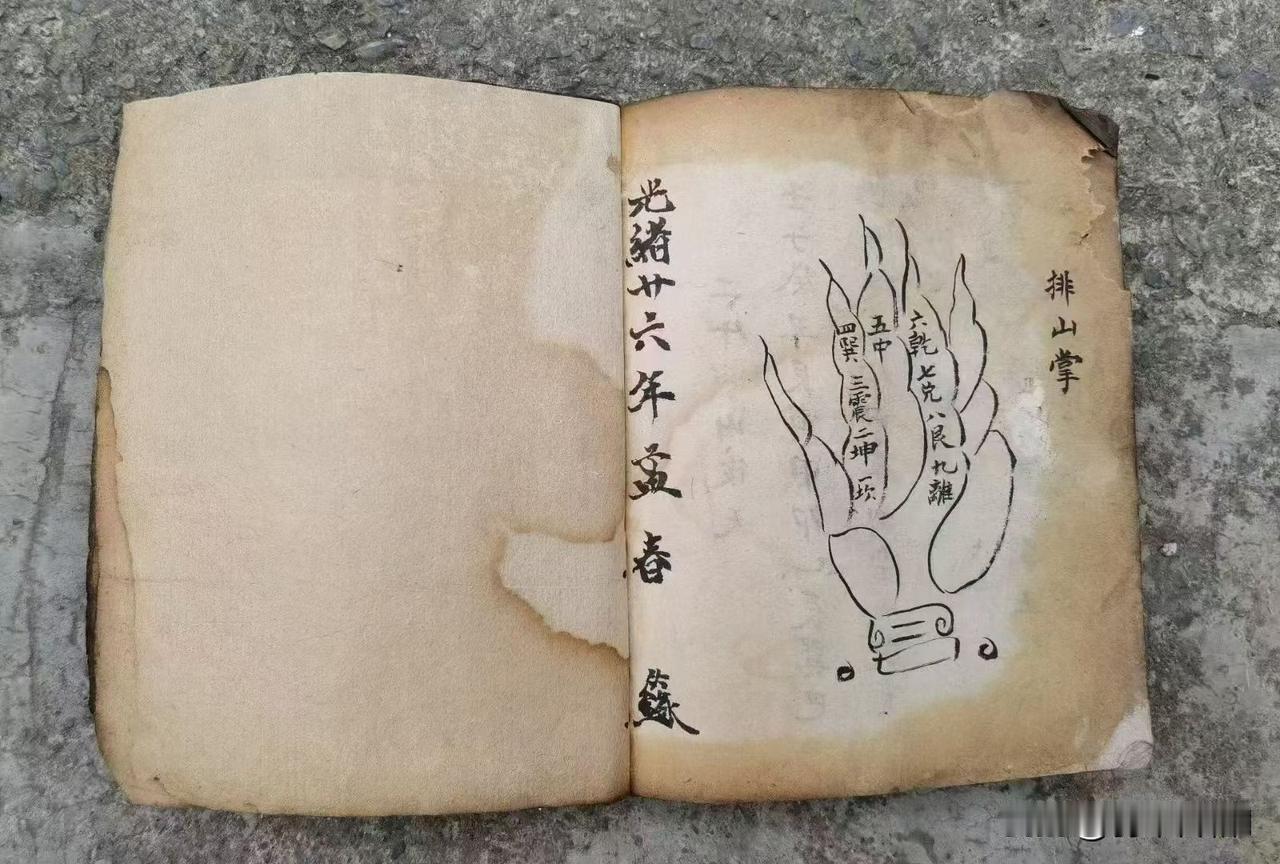 排山掌
六乾七兌八艮九離
五中
四巽三震二坤一坎
光緒廿六年孟春